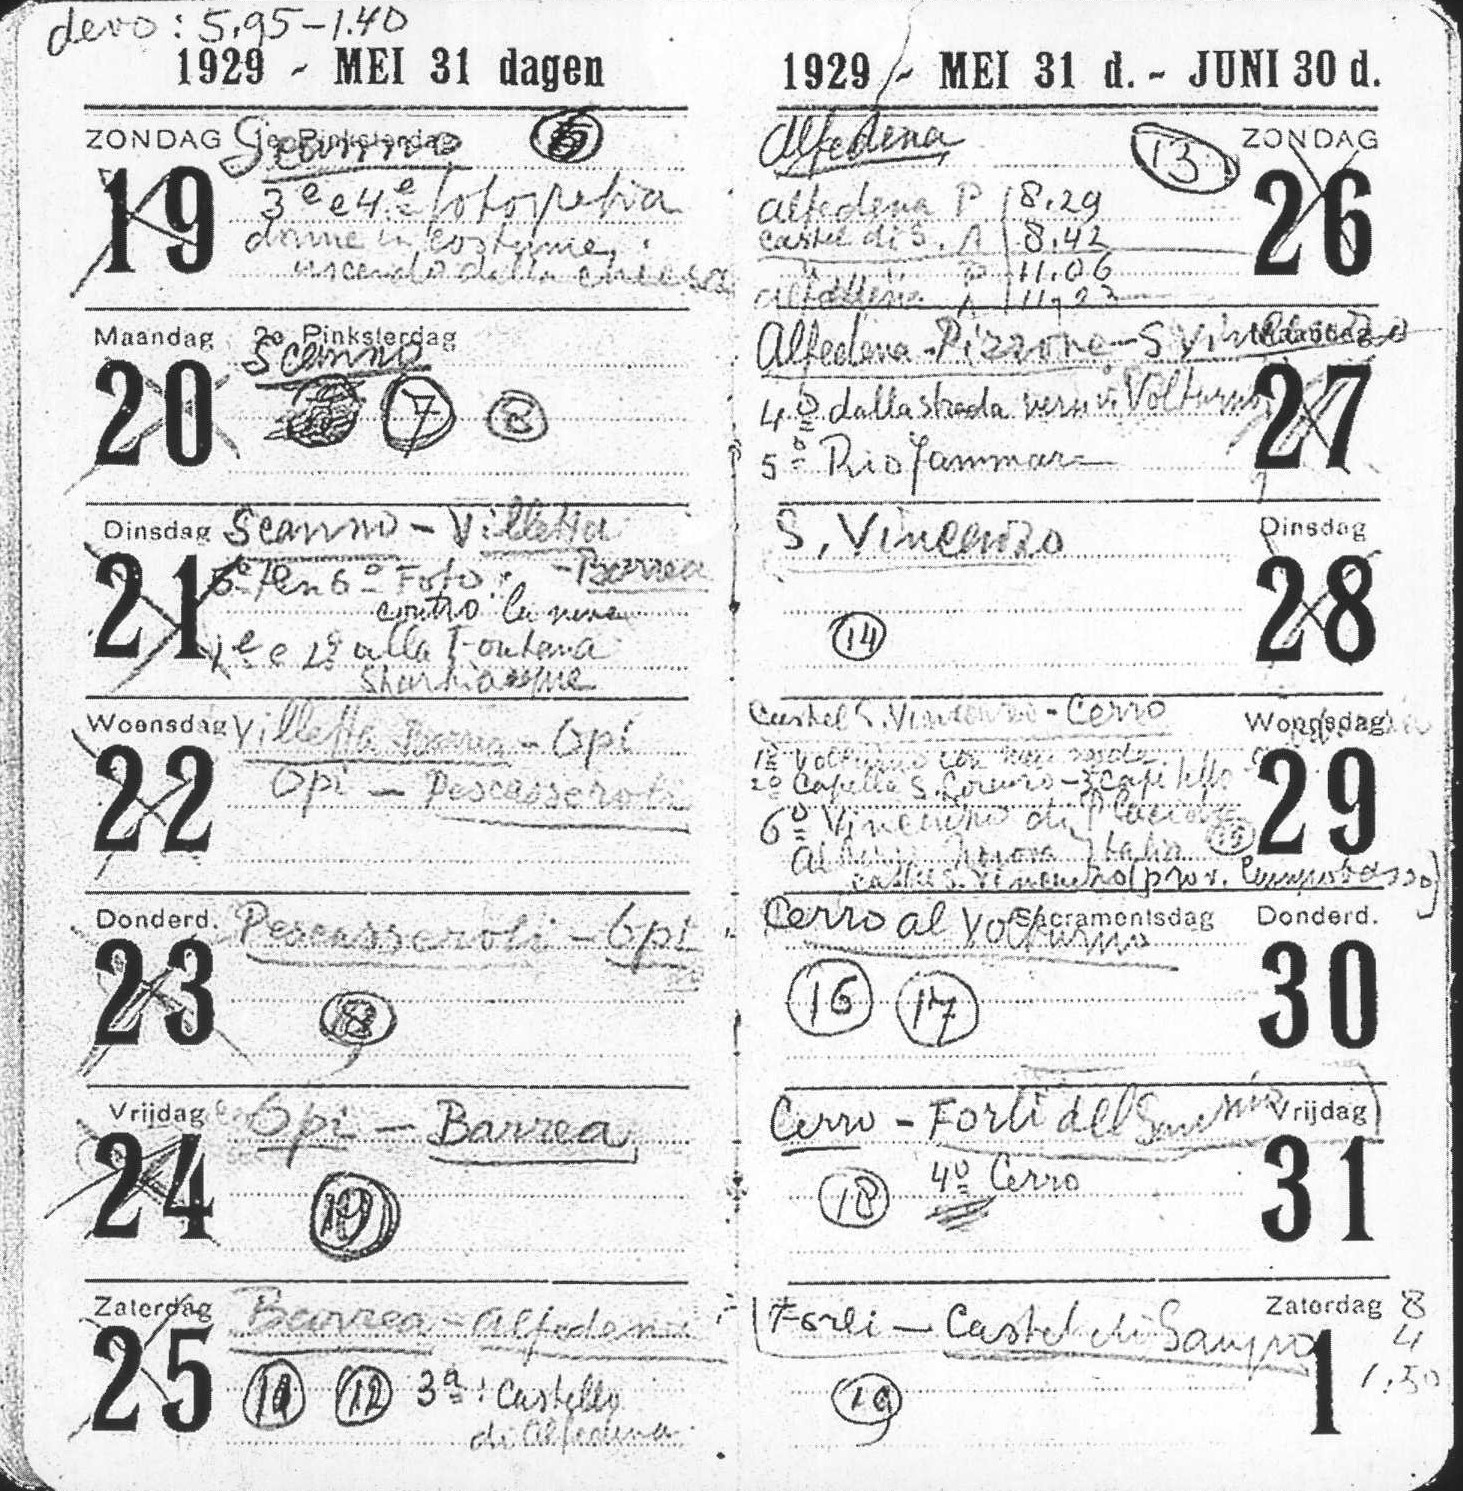 devo: 5,95-1.40
1929 - MEI 31 dagen
ZONDAG 1e Pinksterdag
Scanno
19
3e e 4e fotografia
donne in costume,
uscendo dalla chiesa
Maandag 2e Pinksterdag
Scanno
20
7 8
Dinsdag Scanno - Villetta
- Barrea
21
6e Foto:
contro la neve
1e e 2e alla Fontana
Woensdag Villetta Barrea - Opi
22
Opi - Pescasseroli
Donderd. Pescasseroli - Opi
23
Vrijdag Opi - Barrea
24
Zaterdag Barrea - Alfedena
25
11 12 3a: Castello
di Alfedena
1929 - MEI 31 d. - JUNI 30 d.
Alfedena 13 ZONDAG
26
alfedena P 8.29
castel di S. A 8.42
P 11.06
alfedena A 11,23
Alfedena - Pizzone - S Vincenzo Maandag
27
4o dalla strada verso il Volturno
5o Rio Jammare
S. Vincenzo Dinsdag
28
14
Castel S. Vincenzo - Cerro Woensdag
29
1o Volturno con
2o Capella S. Lorenzo - 3 Capitello
6o Vincenzo di
15
Castel S. Vincenzo (prov. Campobasso)
Cerro al Volturno Sacramentsdag Donderd.
30
16 17
Cerro - Forli del Sannio Vrijdag
31
18 4o Cerro
Forli - Castel di Sangro Zaterdag 8
1
4
1.50
19